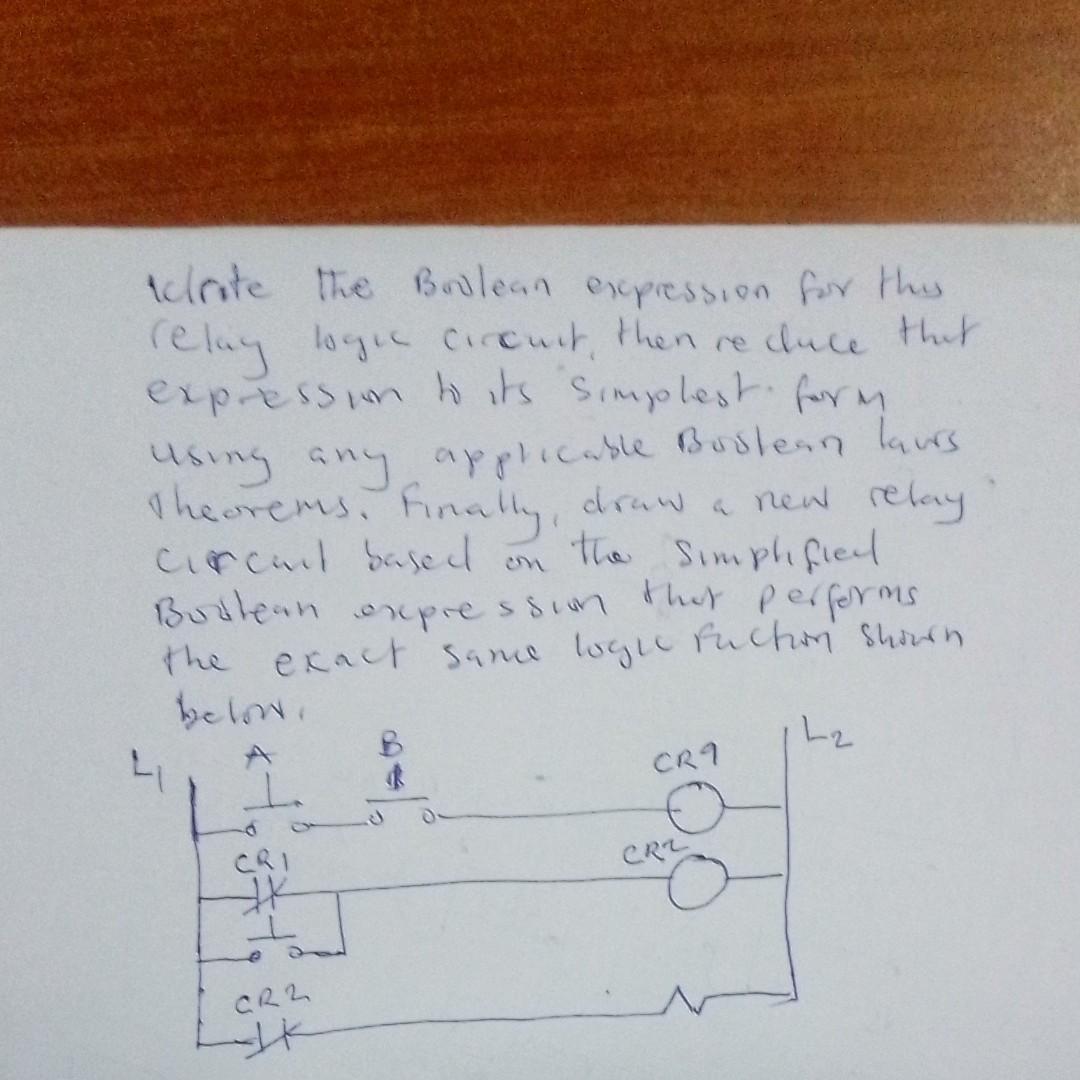 Write the Boolean expression for this
relay logic circuit, then reduce that
expression to its simplest form
using any applicable Boolean laws
Theorems. Finally, draw a new relay
circuit based on the simplified
Boolean expression that performs
the exact same logic fuction shown
below.
L1 A B CR9 L2
CR1 CR2
CR2